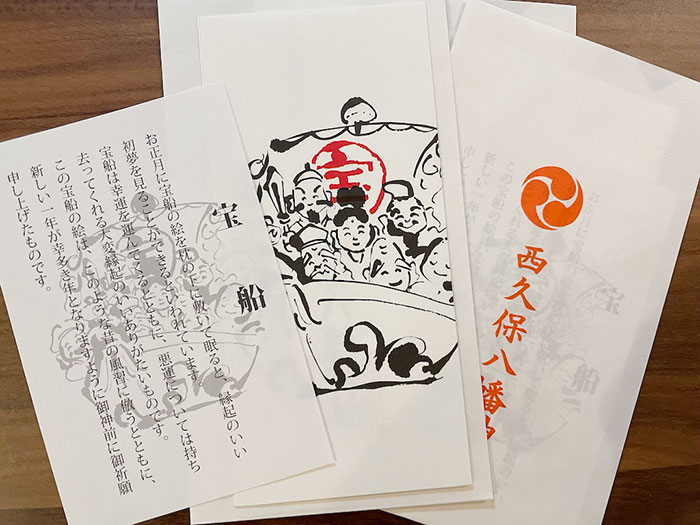 宝船
お正月に宝船の絵を枕の下に敷いて眠ると、縁起のいい
初夢を見ることができるといわれています。
宝船は幸運を運んでくるとともに、悪運については持ち
去ってくれる大変縁起のいいありがたいものです。
この宝船の絵は、このような昔の風習に倣うとともに、
新しい一年が幸多き年となりますように御神前に御祈願
申し上げたものです。
宝
西久保八幡